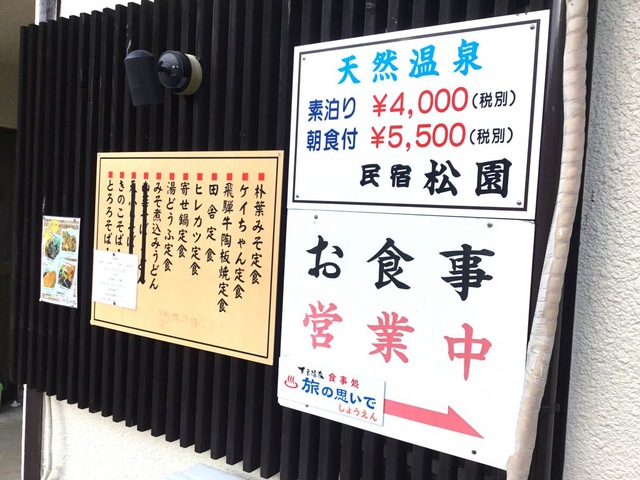 天然温泉
素泊り ¥4,000(税別)
朝食付 ¥5,500(税別)
民宿 松園
お食事
営業中
食事処
旅の思いで
しょうえん
■朴葉みそ定食
■ケイちゃん定食
■飛騨牛陶板焼定食
■田舎定食
■ヒレカツ定食
■寄せ鍋定食
■湯どうふ定食
■みそ煮込みうどん
■きのこそば
■とろろそば